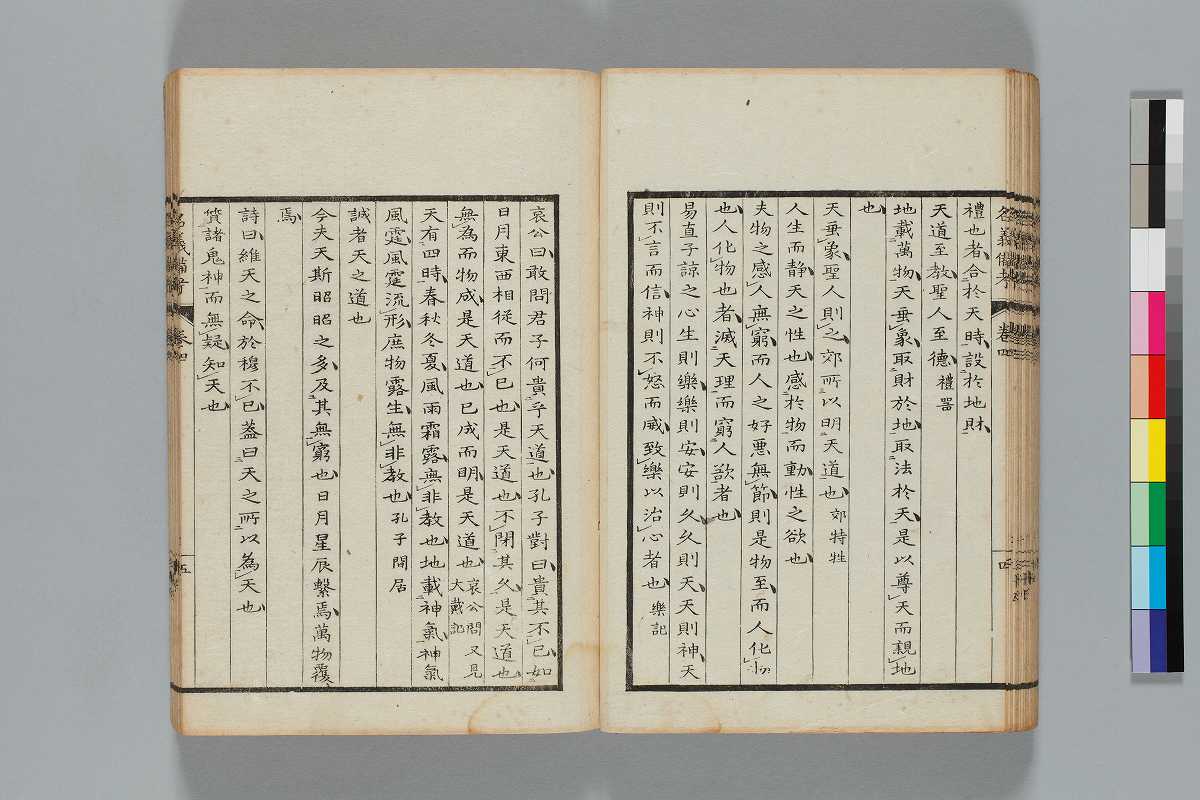 名義備考
卷四
四
禮也者合於天時設於地財
天道至教聖人至德禮器
地載萬物天垂象取財於地取法於天是以尊天而親地
也
天垂象聖人則之郊所以明天道也郊特牲
人生而静天之性也感於物而動性之欲也
夫物之感人無窮而人之好悪無節則是物至而人化物
也人化物也者滅天理而窮人欲者也
易直子諒之心生則樂樂則安安則久久則天天則神天
則不言而信神則不怒而威致樂以治心者也樂記
哀公曰敢問君子何貴乎天道也孔子對曰貴其不已如
日月東西相從而不已也是天道也不閉其久是天道也
無為而物成是天道也已成而明是天道也哀公問又見
大戴記
天有四時春秋冬夏風雨霜露無非教也地載神氣神氣
風霆風霆流形庶物露生無非教也孔子閒居
誠者天之道也
今夫天斯昭昭之多及其無窮也日月星辰繫焉萬物覆
焉
詩曰維天之命於穆不已蓋曰天之所以為天也
質諸鬼神而無疑知天也
名義備考
卷四
五